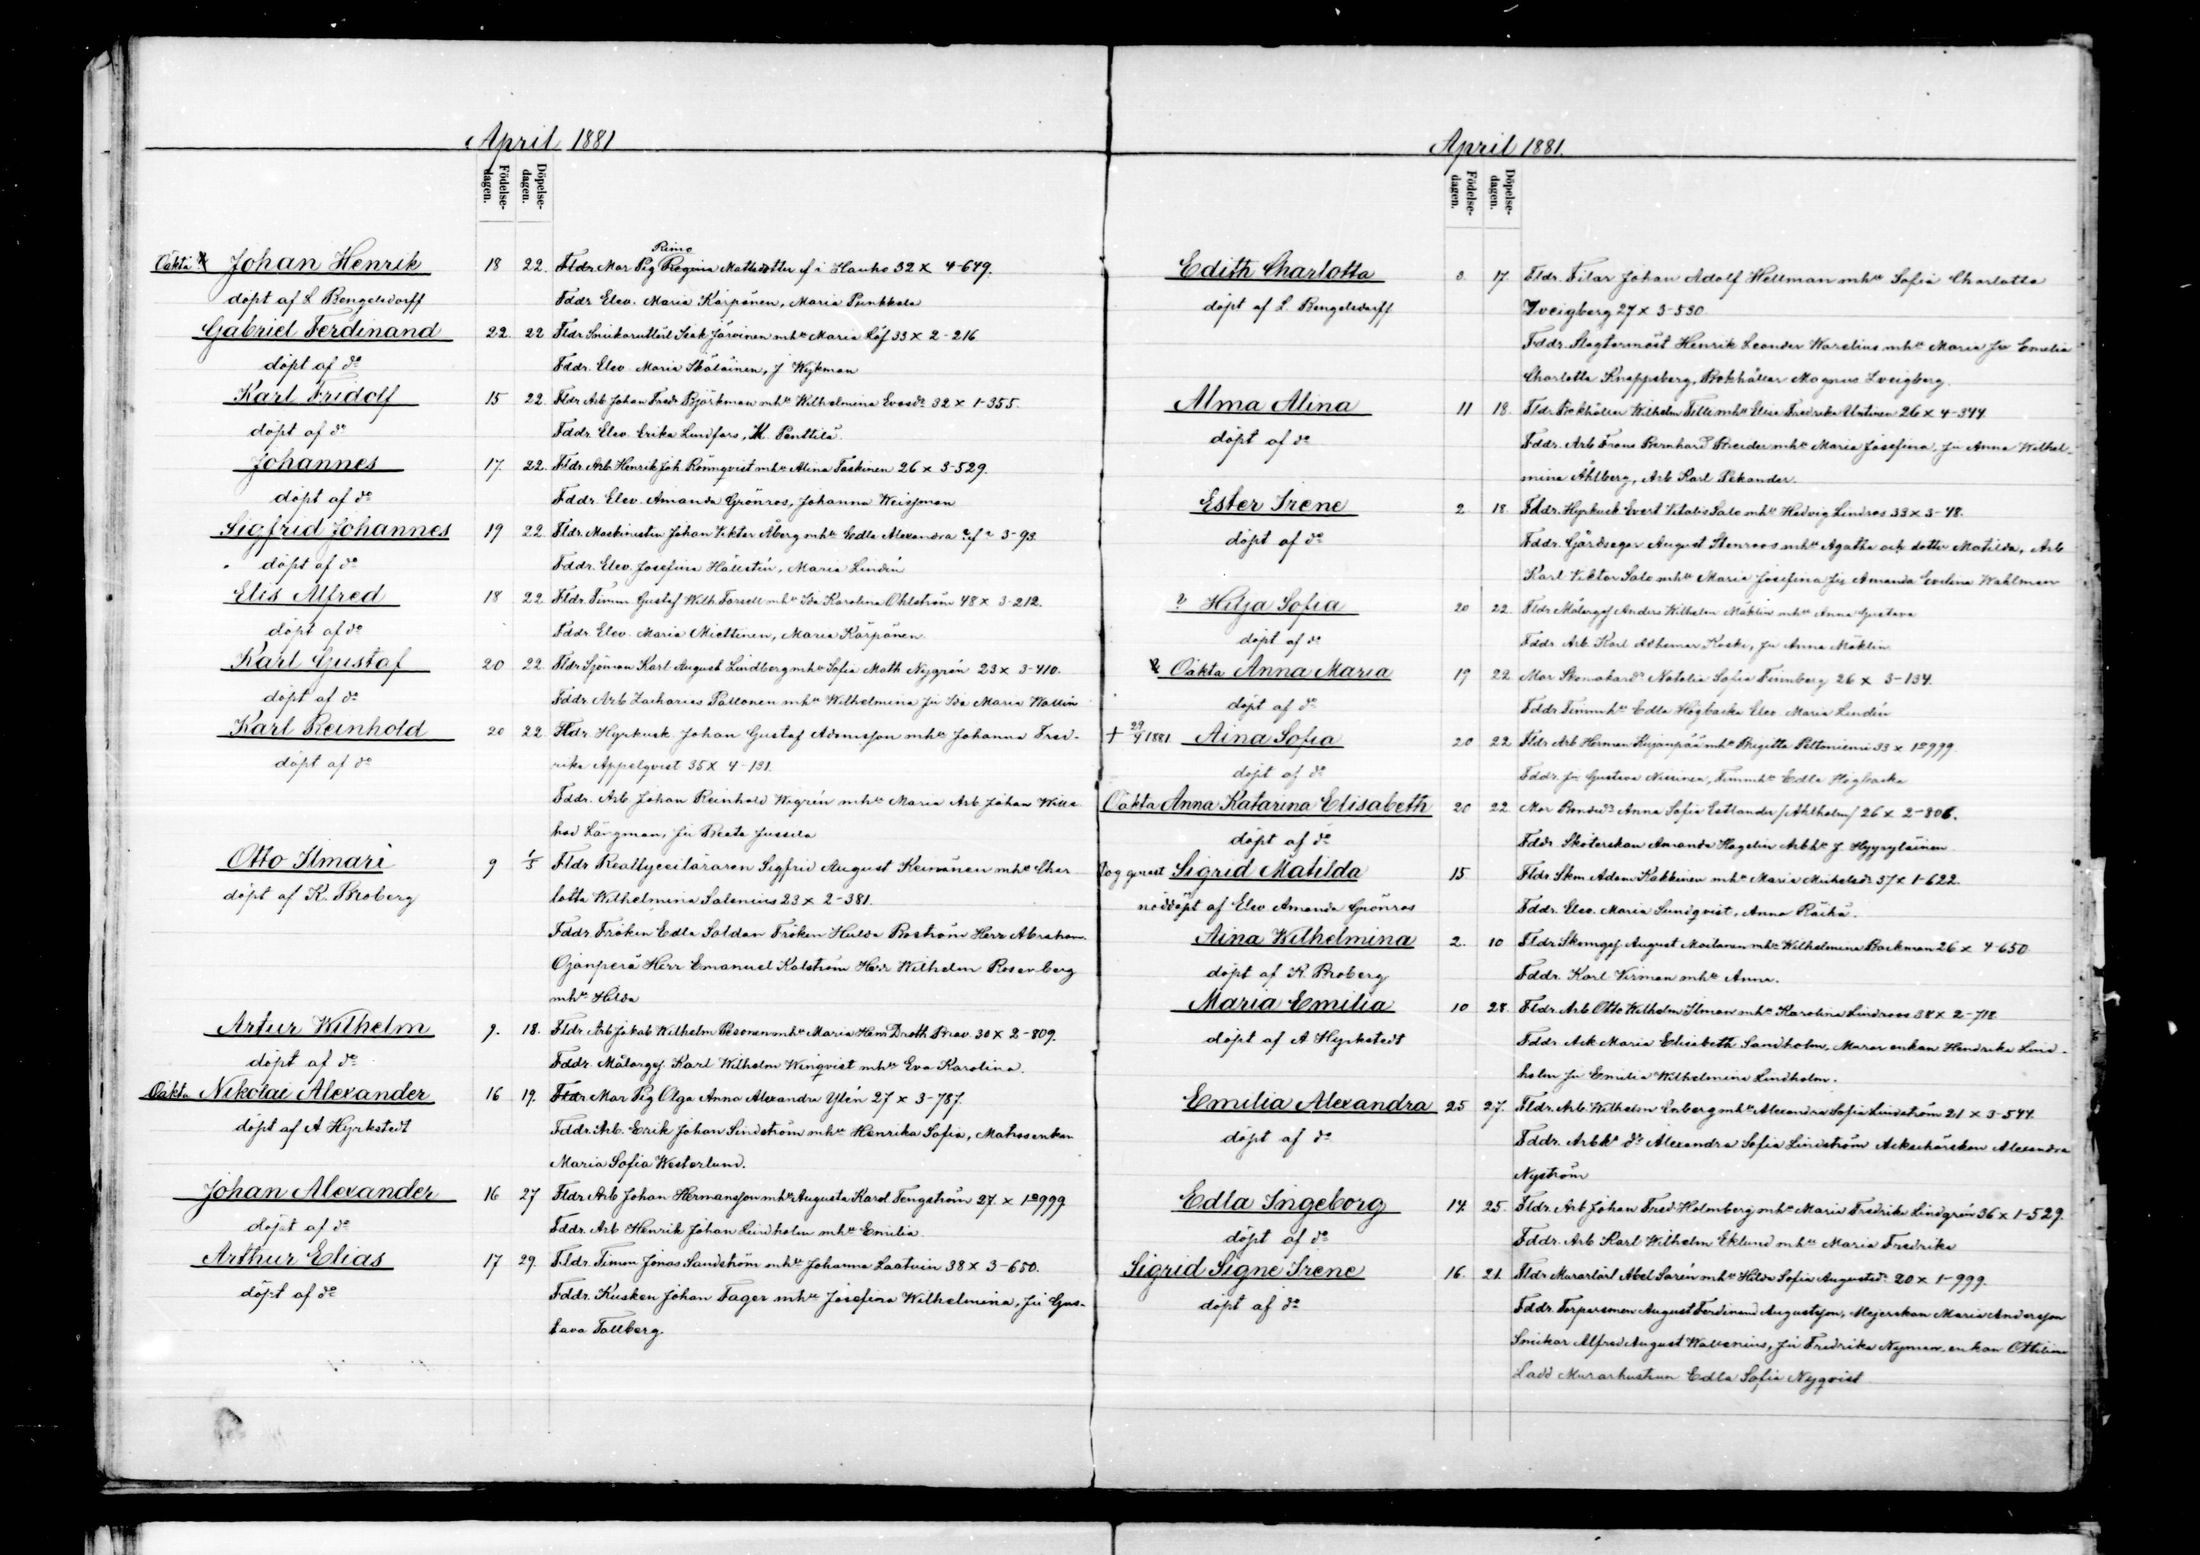 April 1881
Födelse-dagen. Döpelse-dagen.
Oäkta Johan Henrik 18 22. Fldr Mor Pig Regina Mattsdotter ef i Hauho 32 x 4-649.
döpt af L Bengelsdorff Fddr Elev. Maria Kärpänen, Maria Punkkala
Gabriel Ferdinand 22. 22 Fldr Snickareutlärl Isak Järvinen mhu Maria Löf 33 x 2-216
döpt af do Fddr. Elev. Maria Skäläinen, J Wykman
Karl Fridolf 15 22. Fldr Arb Johan Fredr Björkman mhu Wilhelmina Evasdr 32 x 1-355.
döpt af do Fddr. Elev. Erika Lindfors, K. Penttilä.
Johannes 17. 22. Fldr. Arb. Henrik Joh. Rönnqvist mhu Alina Taskinen 26 x 3-529.
döpt af do Fddr. Elev. Amanda Grönros, Johanna Weissman
Sigfrid Johannes 19 22 Fldr. Maskinisten Johan Viktor Åberg mhu Edla Alexandra 3-93.
döpt af do Fddr. Elev. Josefina Hällstén, Maria Lindén
Elis Alfred 18 22 Fldr. Timm Gustaf Wilh Forsell mhu Ida Karolina Ohlström 48 x 3-212.
döpt af do Fddr. Elev. Maria Miettinen, Maria Kärpänen.
Karl Gustaf 20 22 Fldr Sjöman Karl August Lindberg mhu Sofia Math Nygrén 23 x 3-410.
döpt af do Fddr Arb Zacharias Paltonen mhu Wilhelmina Ju Ida Maria Wallin
Karl Reinhold 20 22 Fldr. Hyrkusk Johan Gustaf Adamsson mhu Johanna Fred-
döpt af do rika Appelqvist 35 x 4-131.
Fddr. Arb Johan Reinhold Wigrén mhu Maria Arb Johan Wille
had Långman, Ju Beata Jussila
Otto Ilmari 9 1/5 Fldr Reallyceiläraren Sigfrid August Keinänen mhu Char
döpt af K. Broberg lotta Wilhelmina Salenius 23 x 2-381.
Fddr Fröken Edla Soldan Fröken Hulda Boström Herr Abraham
Ojanperä Herr Emanuel Kalström Herr Wilhelm Rosenberg
mhu Hilda
Artur Wilhelm 9. 18. Fldr Arb Jakob Wilhelm Pesonen mhu Maria Hem Droth Brav. 30 x 2-809.
döpt af do Fddr. Målargej Karl Wilhelm Winqvist mhu Eva Karolina.
Oäkta Nikolai Alexander 16 19. Fldr Mor Pig Olga Anna Alexandra Ylén 27 x 3-787.
döpt af A Hyrkstedt Fddr. Arb. Erik Johan Lindström mhu Henrika Sofia, Matrosenkan
Maria Sofia Westerlund.
Johan Alexander 16 27 Fldr Arb Johan Hermansson mhu Augusta Karol Tengström 27. x 1a999
döpt af do Fddr. Arb Henrik Johan Lindholm mhu Emilia.
Arthur Elias 17 29. Fldr. Timm Jonas Sandström mhu Johanna Laatvin 38 x 3-650.
döpt af do Fddr. Kusken Johan Fager mhu Josefina Wilhelmina, Ju Gus-
tava Tallberg.
April 1881.
Födelse-dagen. Döpelse-dagen.
Edith Charlotta 3. 17. Fldr. Filar Johan Adolf Hellman mhu Sofia Charlotta
döpt af L. Bengelsdorff Zveigberg 27 x 3-530.
Fddr. Slagtarmäst Henrik Leander Warelius mhu Maria Ju Emelia
Charlotta Knappsberg, Bokhållar Magnus Zveigberg.
Alma Alina 11 18. Fldr. Bokhållar Wilhelm Telli mhu Elisa Fredrika Untinen 26 x 4-344.
döpt af do Fddr. Arb Frans Bernhard Breider mhu Maria Josefina, Ju Anna Wilhel-
mina Åhlberg, Arb Karl Pekander.
Ester Irene 2 18. Fldr. Hyrkusk Evert Vitalis Salo mhu Hedvig Lindros 33 x 3-48.
döpt af do Fddr. Gårdsegar August Stenroos mhu Agatha och dotter Matilda, Arb
Karl Viktor Salo mhu Maria Josefina Ju Amanda Evelina Wahlman
? Hilja Sofia 20 22. Fldr Målargej Anders Wilhelm Mäklin mhu Anna Gustava
döpt af do Fddr. Arb. Karl Alhemar Koski, Ju Anna Mäklin
Oäkta Anna Maria 19 22. Mor Skomakardr Natalia Sofia Finnberg 26 x 3-134.
döpt af do Fddr Timmhu Edla Högbacka Elev Maria Lindén
+ 29/4 1881 Aina Sofia 20 22 Fldr Arb Herman Kujanpää mhu Brigitta Peltoniemi 33 x 1a999
döpt af do Fddr. Ju Gustava Nissinen, Timmhu Edla Högbacka
Oäkta Anna Katarina Elisabeth 20 22. Mor Bondedr Anna Sofia Estlander /Ahlholm/ 26 x 2-806.
döpt af do Fddr Sköterskan Amanda Hagelin Arbhu J. Hyyryläinen
Sigrid Matilda 15 Fldr. Skm Adam Kakkinen mhu Maria Michelsdr 37 x 1-622.
nöddöpt af Elev Amanda Grönros Fddr. Elev. Maria Sundqvist, Anna Räihä.
Aina Wilhelmina 2. 10 Fldr. Skomgej August Moilanen mhu Wilhelmina Backman 26 x 4-650
döpt af K. Broberg Fddr. Karl Virman mhu Anna.
Maria Emilia 10 28 Fldr. Arb Otto Wilhelm Ilman mhu Karolina Lindroos 38 x 2-718
döpt af A Hyrkstedt Fddr. Ack Maria Elisabeth Sandholm, Murar enkan Hendrika Lind-
holm Ju Emilia Wilhelmina Lindholm.
Emilia Alexandra 25 27. Fldr. Arb Wilhelm Enberg mhu Alexandra Sofia Lindström 21 x 3-544.
döpt af do Fddr. Arbkr do Alexandra Sofia Lindström Ackuschörskan Alexandra
Nyström
Edla Ingeborg 14. 25. Fldr. Arb Johan Fred Holmberg mhu Maria Fredrika Lindgrén 36 x 1-529.
döpt af do Fddr. Arb Karl Wilhelm Eklund mhu Maria Fredrika
Sigrid Signe Irene 16. 21. Fldr Murarlärl Abel Sarén mhu Hilda Sofia Augustsdr 20 x 1-999.
döpt af do Fddr. Torparsonen August Ferdinand Augustsson, Mejerskan Maria Andersson
Snickar Alfred August Wallenius, Ju Fredrika Nyman, enkan Ottiliana
Ladd Murarhustrun Edla Sofia Nyqvist